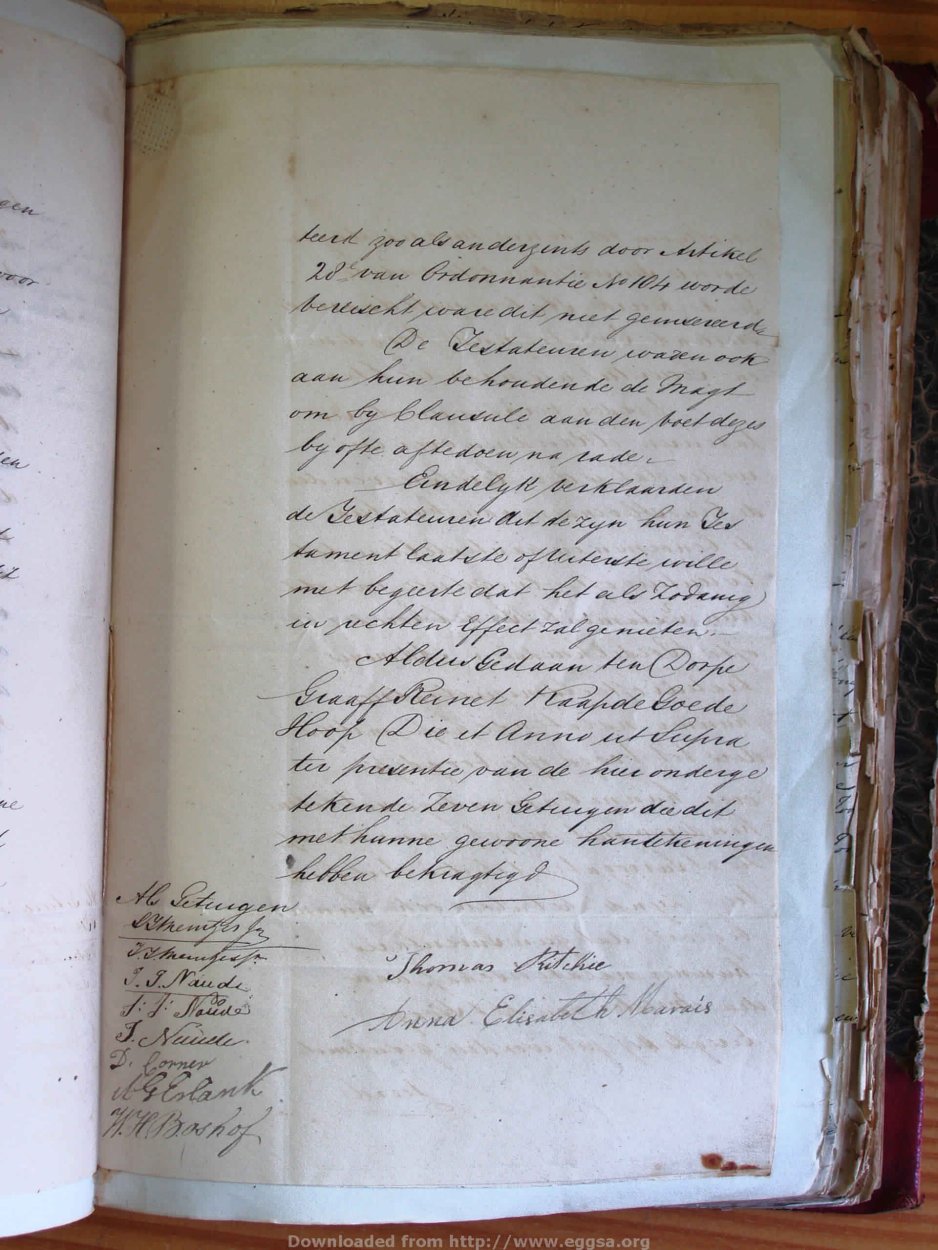 gen
voor
teerd zoo als anderzints door Artikel
28e van Ordonnantie No 104 worde
vereischt ware dit niet geinsereerd
De Testateuren wazen ook
aan hun behoudende de Magt
om by Clausule aan den voet dezes
by ofte afte doen na rade
Eindelyk verklaarden
de Testateuren dit de zyn hun Tes
tament laatste of uiterste wille
met begeerte dat het als Zodanig
in rechten Effect zal genieten
Aldus Gedaan ten Dorpe
Graaff Reinet Kaap de Goede
Hoop Die et Anno ut Supra
ter presentie van de hier onderge
tekende Zeven Getuigen die dit
met hunne gewoone handtekeningen
hebben bekragtigd
Als Getuigen
Thomas Ritchie
Anna Elisabeth Marais
J. J. Naude
J. J. Naude
J. Naude
D. Corner
A G Erlank
W. H. Boshof
Downloaded from http://www.eggsa.org